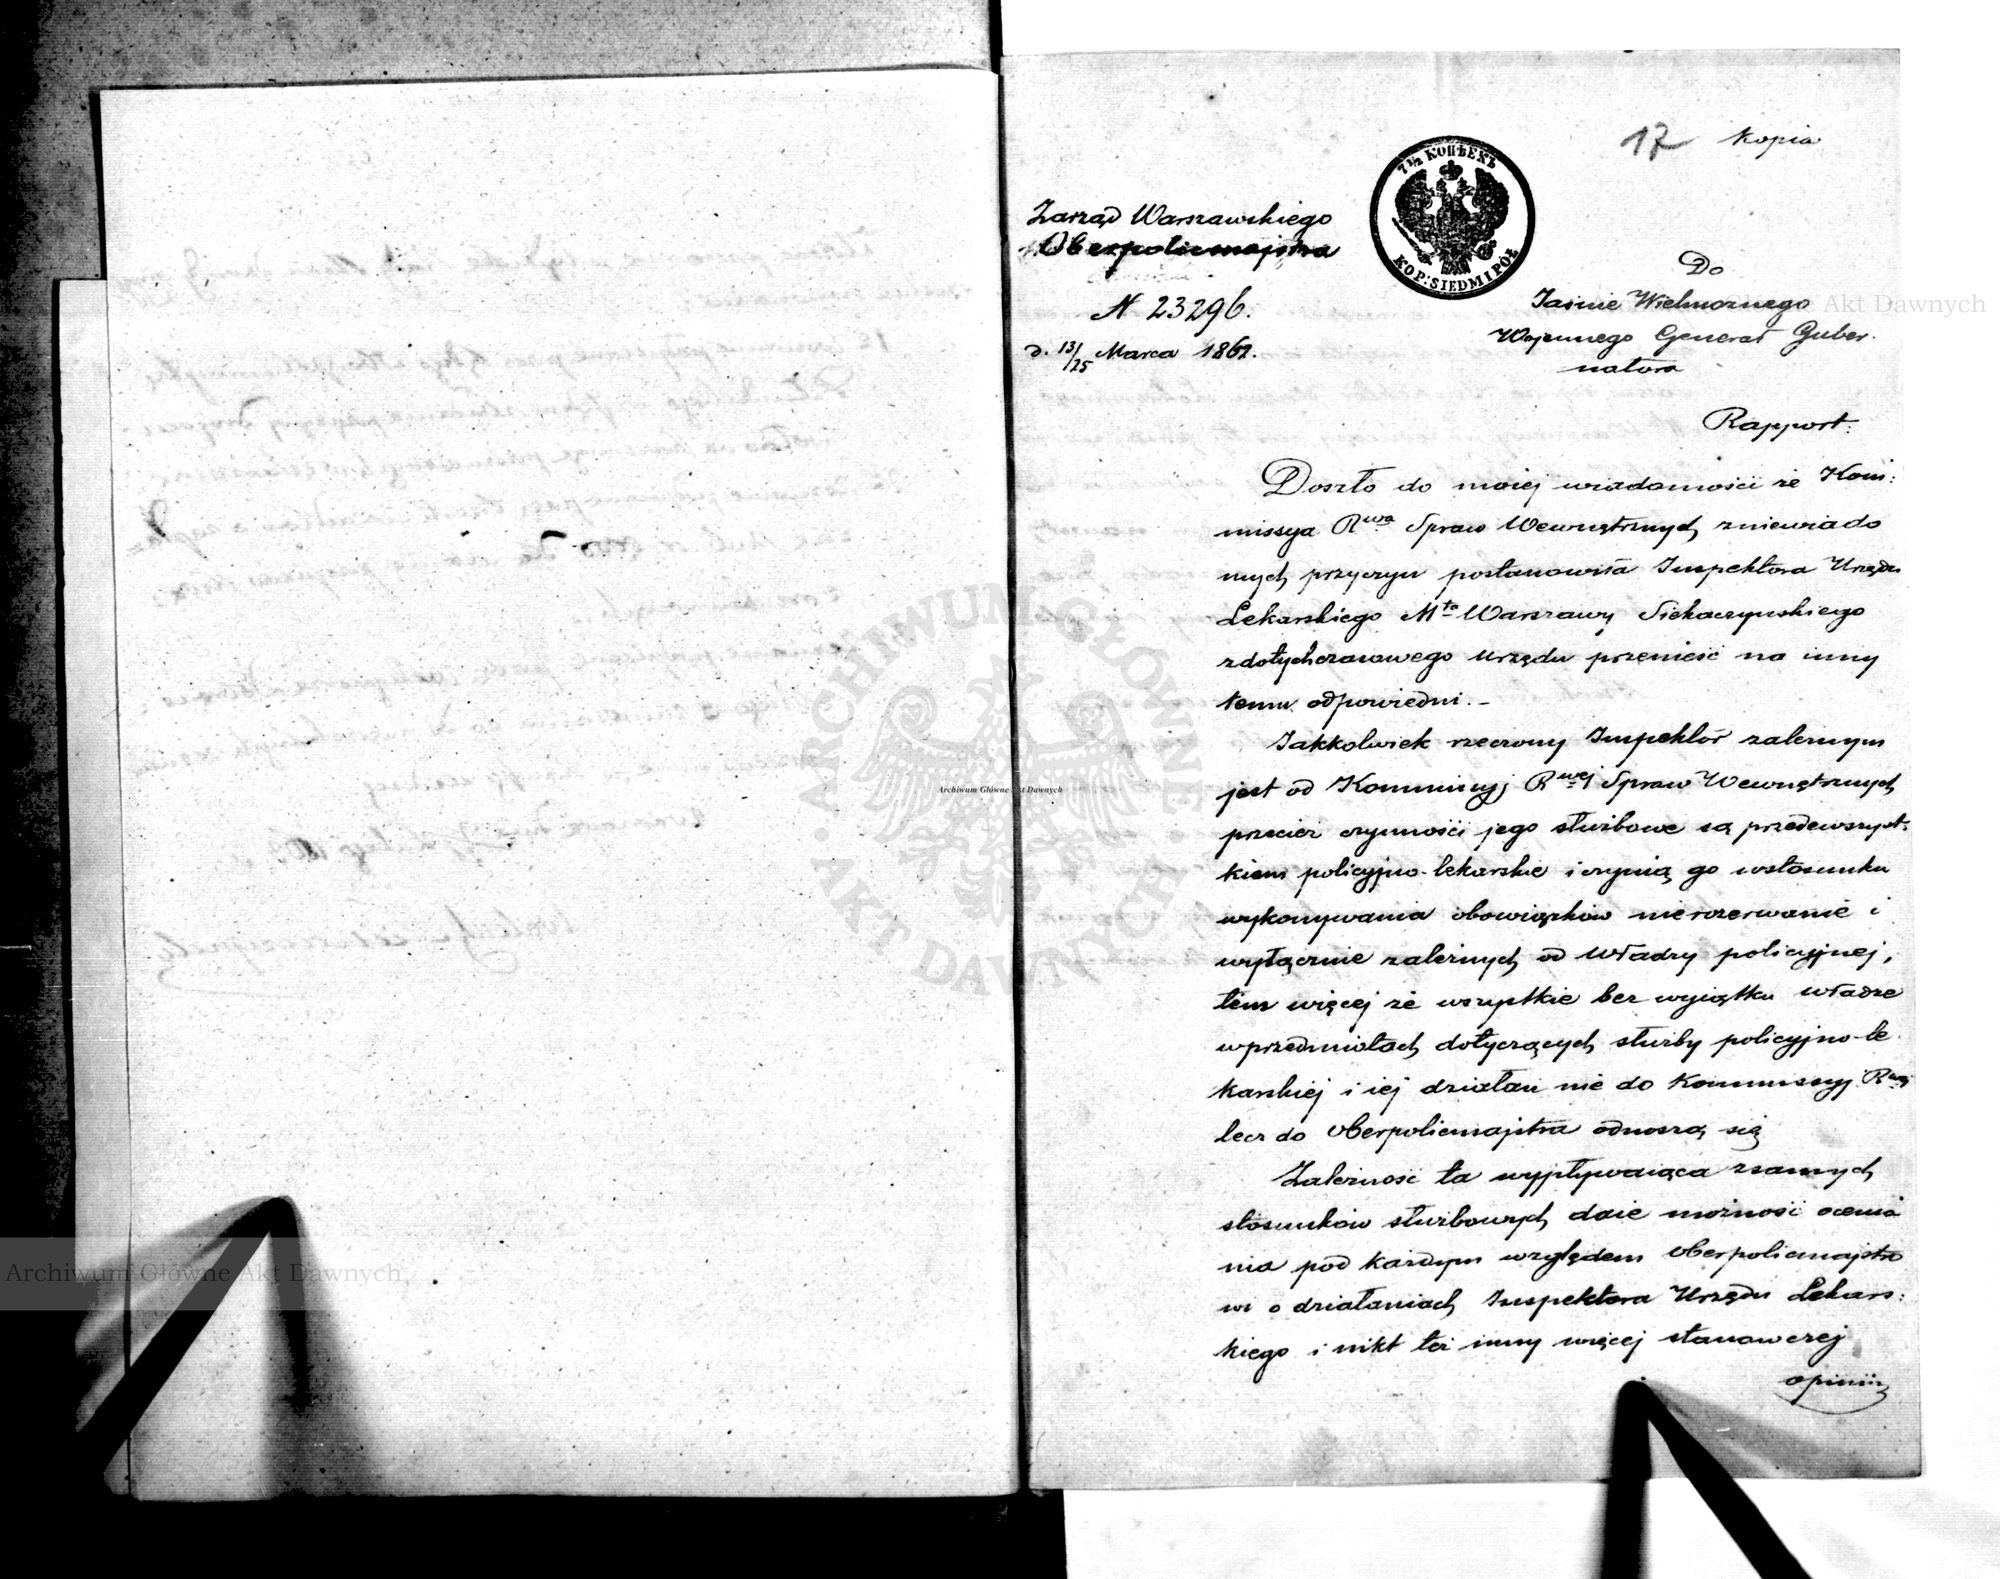 17 Kopia
7½ КОПѢЕКЪ
KOP: SIEDMI PÓŁ
Zarząd Warszawskiego
Oberpolicmajstra
N 23296.
d. 13/25 Marca 1861.
Do
Jaśnie Wielmożnego
Wojennego Generał Guber.
natora
Rapport:
Doszło do moiej wiadomości że Kom:
missya Rwa Spraw Wewnętrznych zniewiado
mych przyczyn postanowiła Inspektora Urzędu
Lekarskiego Mta Warszawy
zdotychczasowego urzędu przenieść na inny
temu odpowiedni. –
Jakkolwiek rzeczony Inspektór zaleznym
jest od Kommissyj Rwej Spraw Wewnętrznych
przecież czynności jego służbowe są przedewszyst:
kiem policyjno-lekarskie i czynią go wstosunku
wykonywania obowiązków nierozerwanie i
wyłącznie zaleznych od Władzy policyjnej,
tem więcej że wszystkie bez wyiątku władze
wprzedmiotach dotyczących służby policyjno-le
karskiej i iej działań nie do Kommissyj Rwej
lecz do Oberpolicmajstra odnoszą się
Zależność ta wypływaiąca zsamych
stosunków służbowych daie możność ocenia
nia pod każdym względem Oberpolicmajstro
wi o działaniach Inspektora Urzędu Lekars:
kiego i nikt też inny więcej stanowczej
opinii
ARCHIWUM GŁÓWNE AKT DAWNYCH
Archiwum Główne Akt Dawnych
Archiwum Główne Akt Dawnych
Akt Dawnych